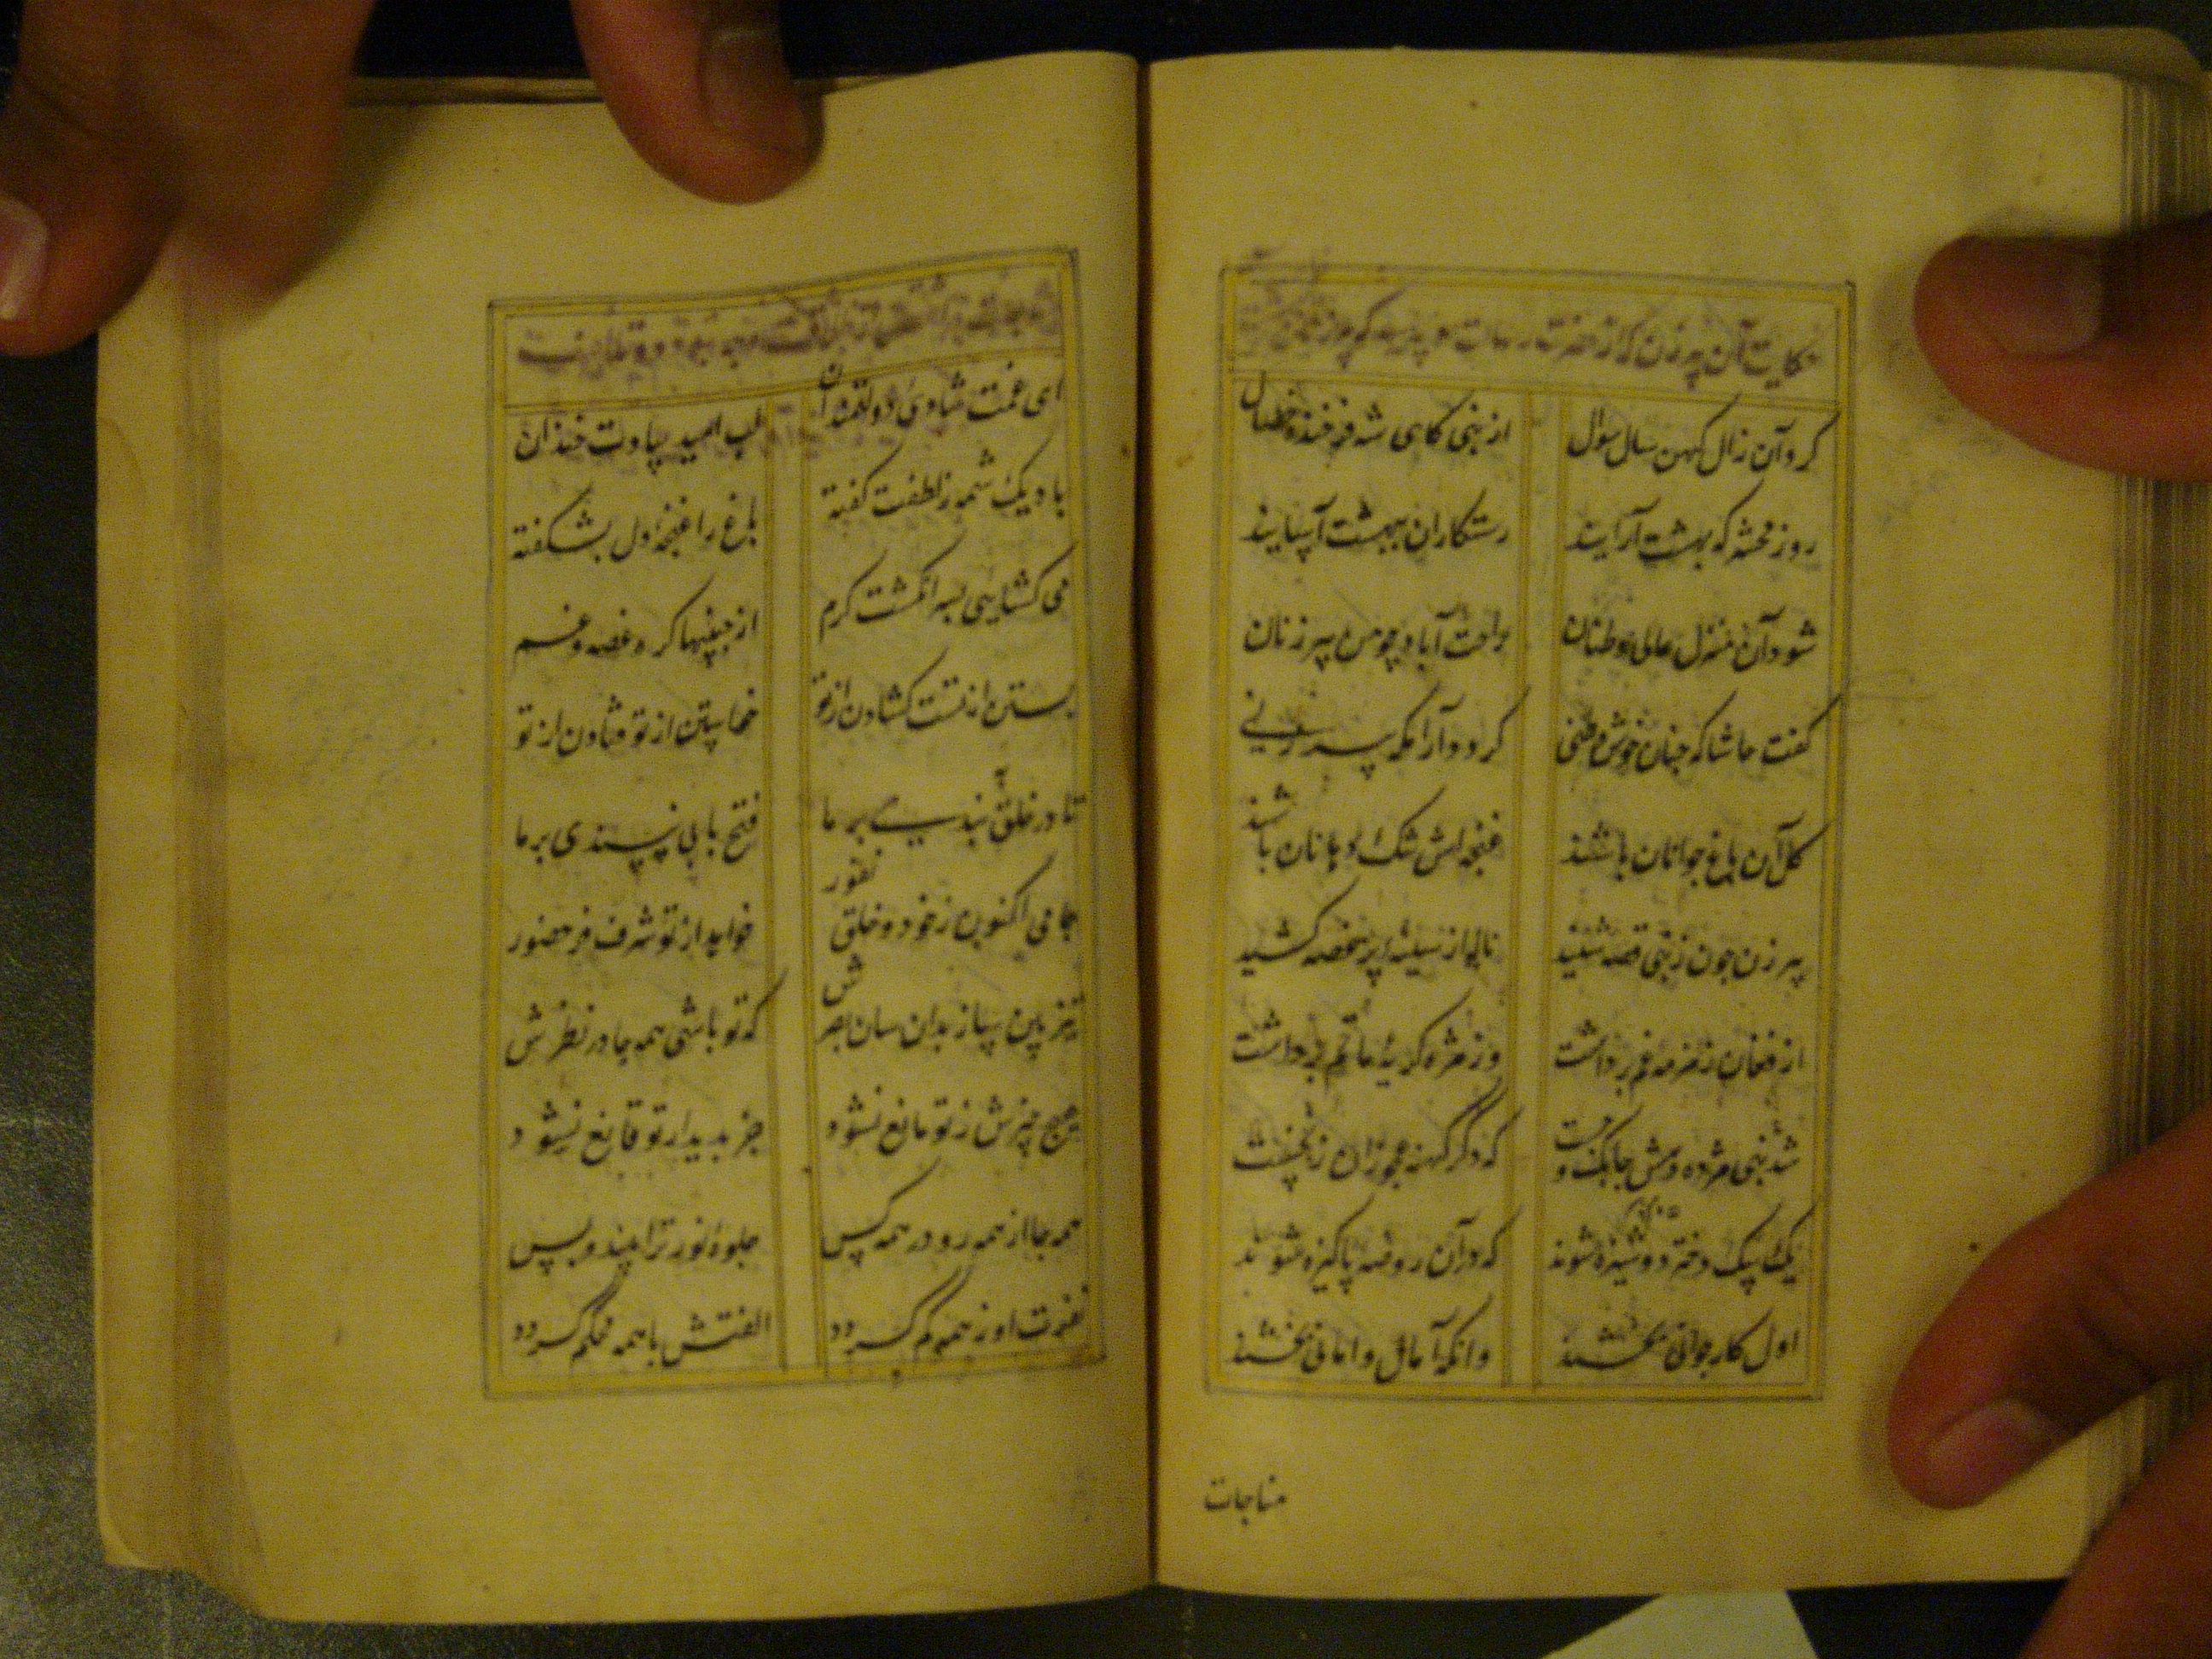 حکایت آن پیرزن که از حضرت رسالت
کرد آن زال کهن سال سوال از نبی کای شه فرخنده خصال
روز محشر که بهشت آرایند رستکاران ببهشت آسایند
شود آن منزل عالی وطنان راحت آباد چو من پیر زنان
کفت حاشا که چنان خوش وطنی کردد آرامکه پیر زنی
کل آن باغ جوانان باشند غنچه اش تنک دهانان باشند
پیر زن چون ز نبی قصه شنید ناله از سینه پر غصه کشید
از فغان زمزمه غم برداشت وز مژه کریه ماتم برداشت
شد نبی مژده دهش چابک و چست که دکر کهنه عجوزان ز نخست
یک بیک دختر دوشیزه شوند که در آن روضه پاکیزه شوند
اول کار جوانی بخشند وانکه آمال و امانی بخشند
مناجات
ای غمت شادی دولتمندان لب امید بیادت خندان
باد یک شمه ز لطفت کفته باغ را غنچه دل بشکفته
می کشایی بسر انکشت کرم از جبینها کره غصه و غم
بستن از تست کشادن از تو خواستن از تو و دادن از تو
تا در خلق نبندی بر ما فتح بابی نپسندی بر ما
جامی اکنون ز خود و خلق نفور خواهد از تو شرف فر حضور
تیز بین ساز بدان سان بصرش که تو باشی همه جا در نظرش
هیچ چیزش ز تو مانع نشود جز بدیدار تو قانع نشود
همه جا از همه رو در همه کس جلوه نور ترا بیند و بس
نفرت او ز همه کم کردد الفتش با همه محکم کردد